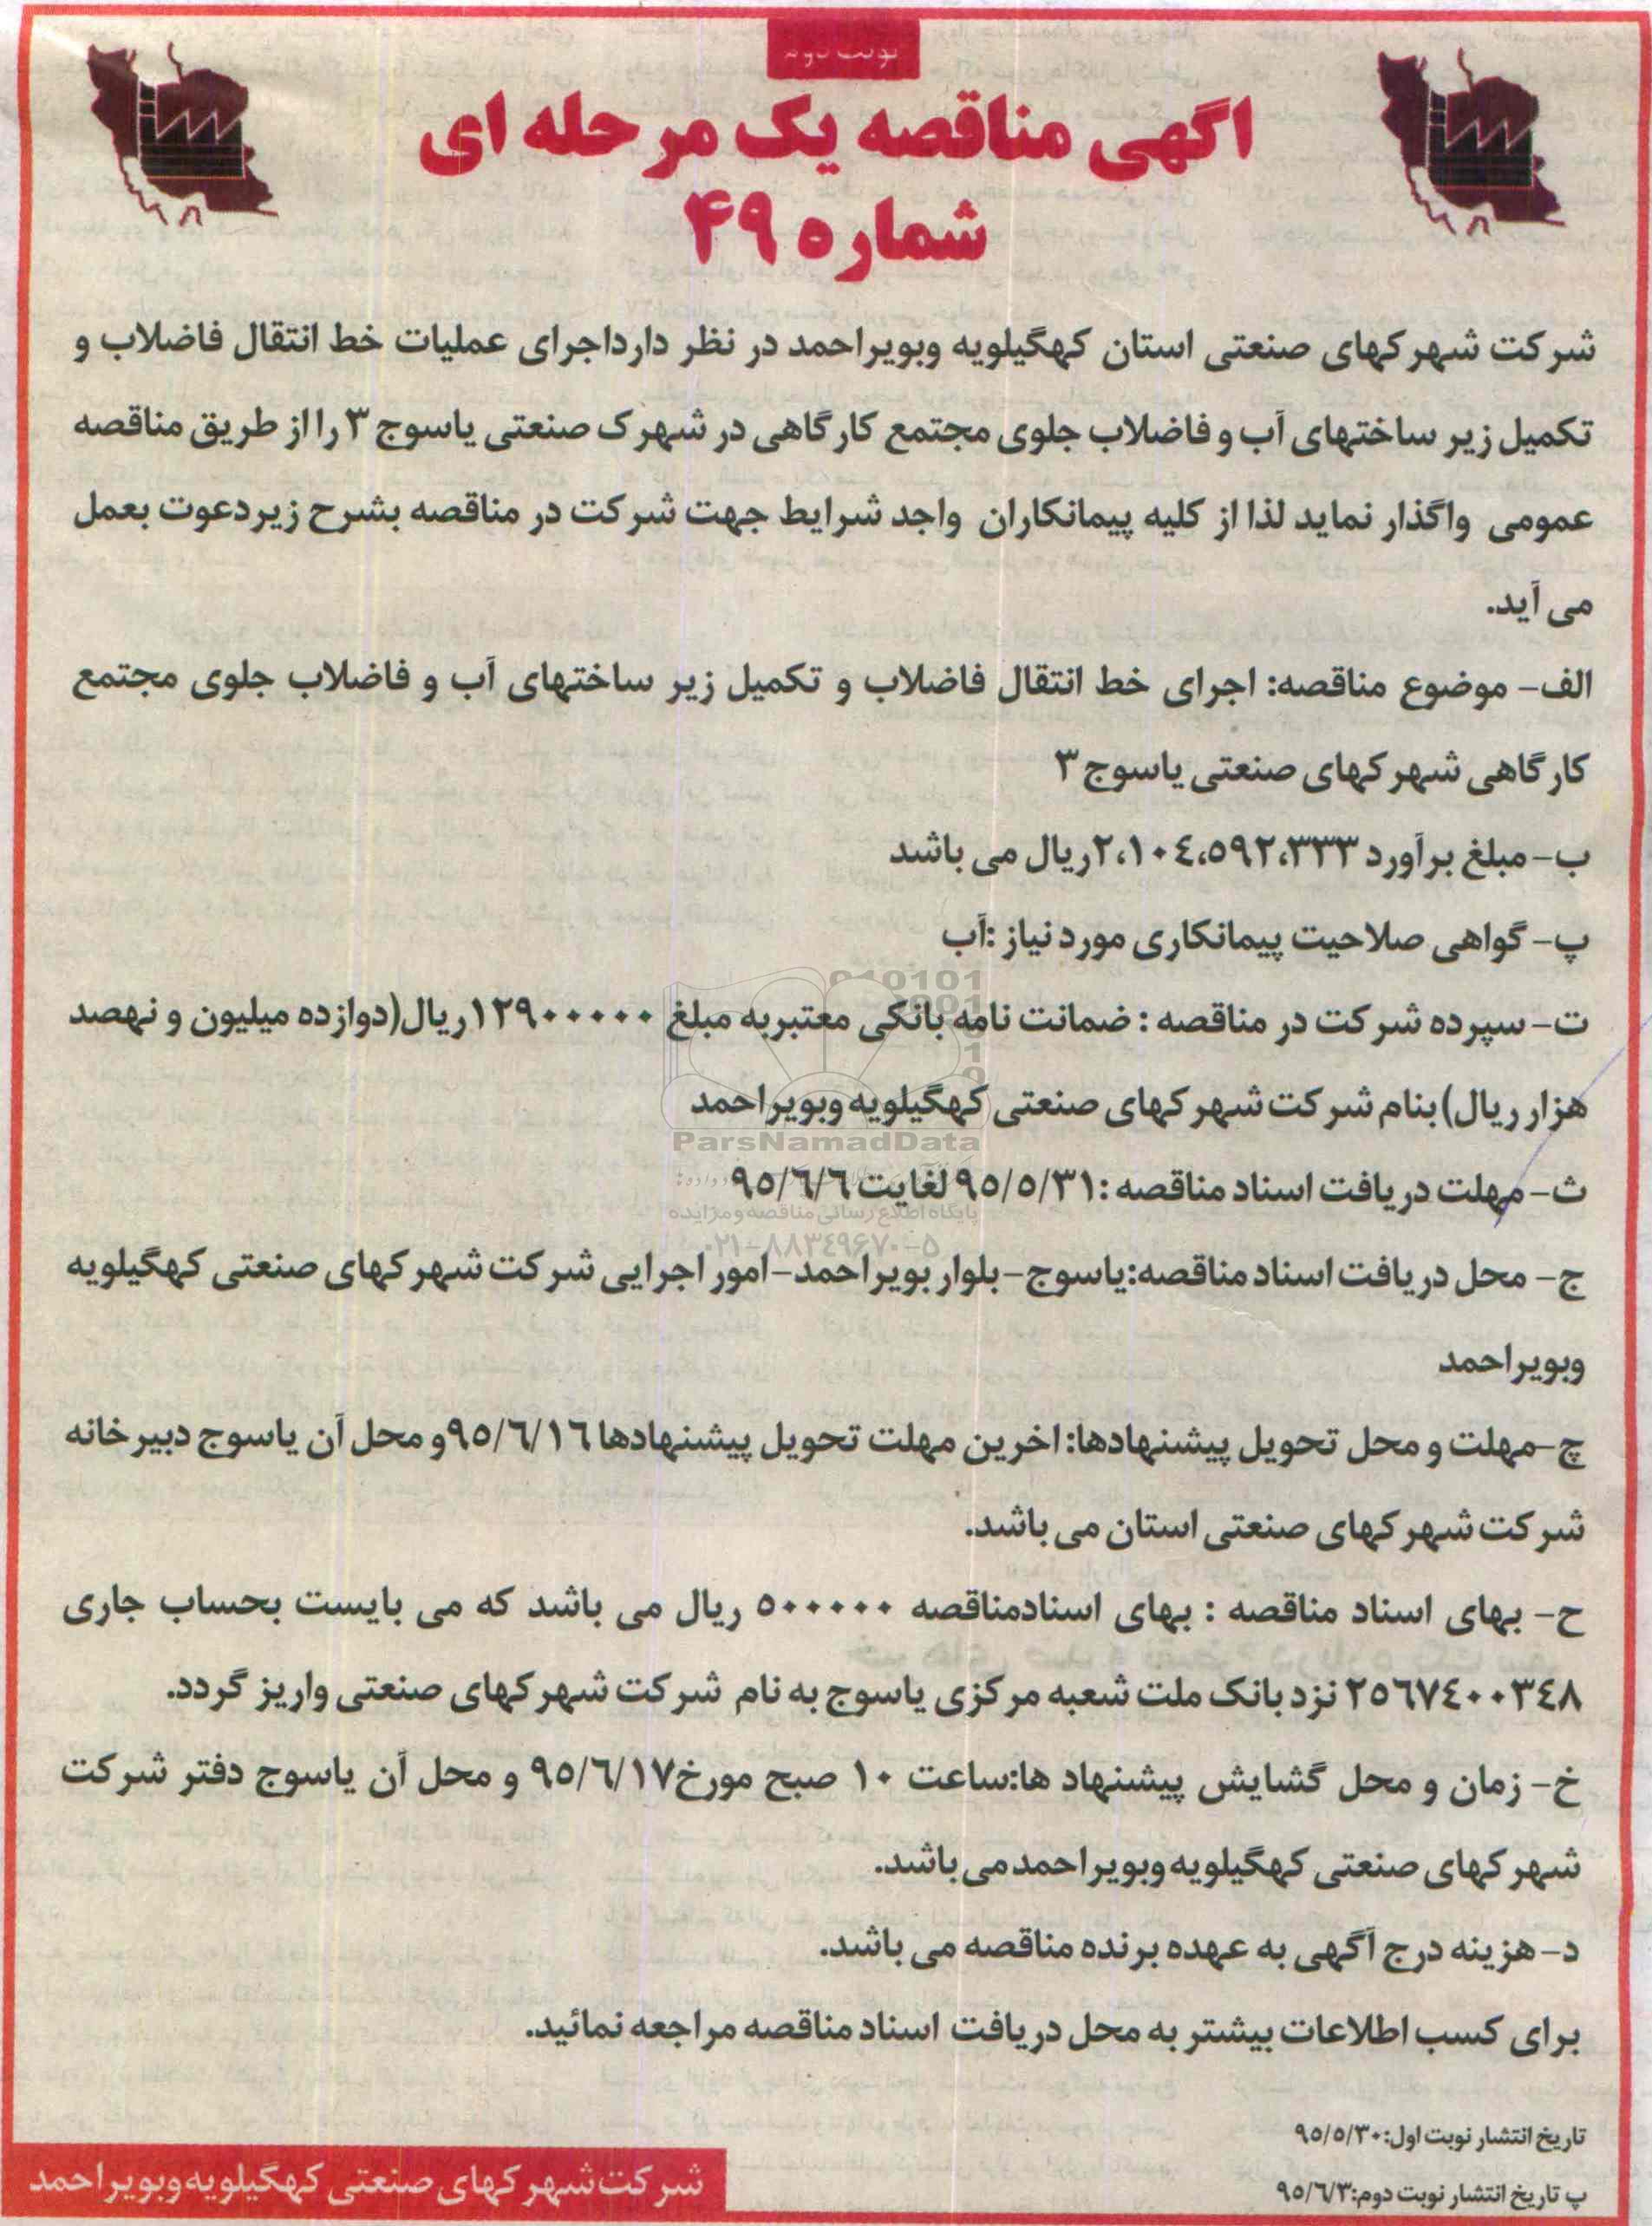 نوبت دوم
اگهی مناقصه یک مرحله ای
شماره ۴۹
شرکت شهرکهای صنعتی استان کهگیلویه وبویراحمد در نظر دارداجرای عملیات خط انتقال فاضلاب و
تکمیل زیر ساختهای آب و فاضلاب جلوی مجتمع کارگاهی در شهرک صنعتی یاسوج ۳ را از طریق مناقصه
عمومی واگذار نماید لذا از کلیه پیمانکاران واجد شرایط جهت شرکت در مناقصه بشرح زیردعوت بعمل
می آید.
الف- موضوع مناقصه: اجرای خط انتقال فاضلاب و تکمیل زیر ساختهای آب و فاضلاب جلوی مجتمع
کارگاهی شهرکهای صنعتی یاسوج ۳
ب- مبلغ برآورد ۲،۱۰٤،۵۹۲،۳۳۳ریال می باشد
پ- گواهی صلاحیت پیمانکاری مورد نیاز :آب
ت- سپرده شرکت در مناقصه : ضمانت نامه بانکی معتبربه مبلغ ۱۲۹۰۰۰۰۰ریال(دوازده میلیون و نهصد
هزار ریال)بنام شرکت شهرکهای صنعتی کهگیلویه وبویراحمد
ParsNamadData
ث- مهلت دریافت اسناد مناقصه :۹۵/۵/۳۱ لغایت ۹۵/٦/٦
پایگاه اطلاع رسانی مناقصه و مزایده
۰۲۱-۸۸۳٤۹۶۷۰-۵
ج- محل دریافت اسناد مناقصه:یاسوج-بلوار بویراحمد-امور اجرایی شرکت شهرکهای صنعتی کهگیلویه
وبویراحمد
چ-مهلت و محل تحویل پیشنهادها: اخرین مهلت تحویل پیشنهادها ۹۵/٦/۱٦و محل آن یاسوج دبیرخانه
شرکت شهرکهای صنعتی استان می باشد.
ح- بهای اسناد مناقصه : بهای اسنادمناقصه ۵۰۰۰۰۰ ریال می باشد که می بایست بحساب جاری
۲۵٦۷٤۰۰۳٤۸ نزد بانک ملت شعبه مرکزی یاسوج به نام شرکت شهرکهای صنعتی واریز گردد.
خ- زمان و محل گشایش پیشنهاد ها:ساعت ۱۰ صبح مورخ۹۵/٦/۱۷ و محل آن یاسوج دفتر شرکت
شهرکهای صنعتی کهگیلویه وبویراحمد می باشد.
د- هزینه درج آگهی به عهده برنده مناقصه می باشد.
برای کسب اطلاعات بیشتر به محل دریافت اسناد مناقصه مراجعه نمائید.
تاریخ انتشار نوبت اول:۹۵/۵/۳۰
پ تاریخ انتشار نوبت دوم:۹۵/٦/۳
شرکت شهرکهای صنعتی کهگیلویه وبویراحمد